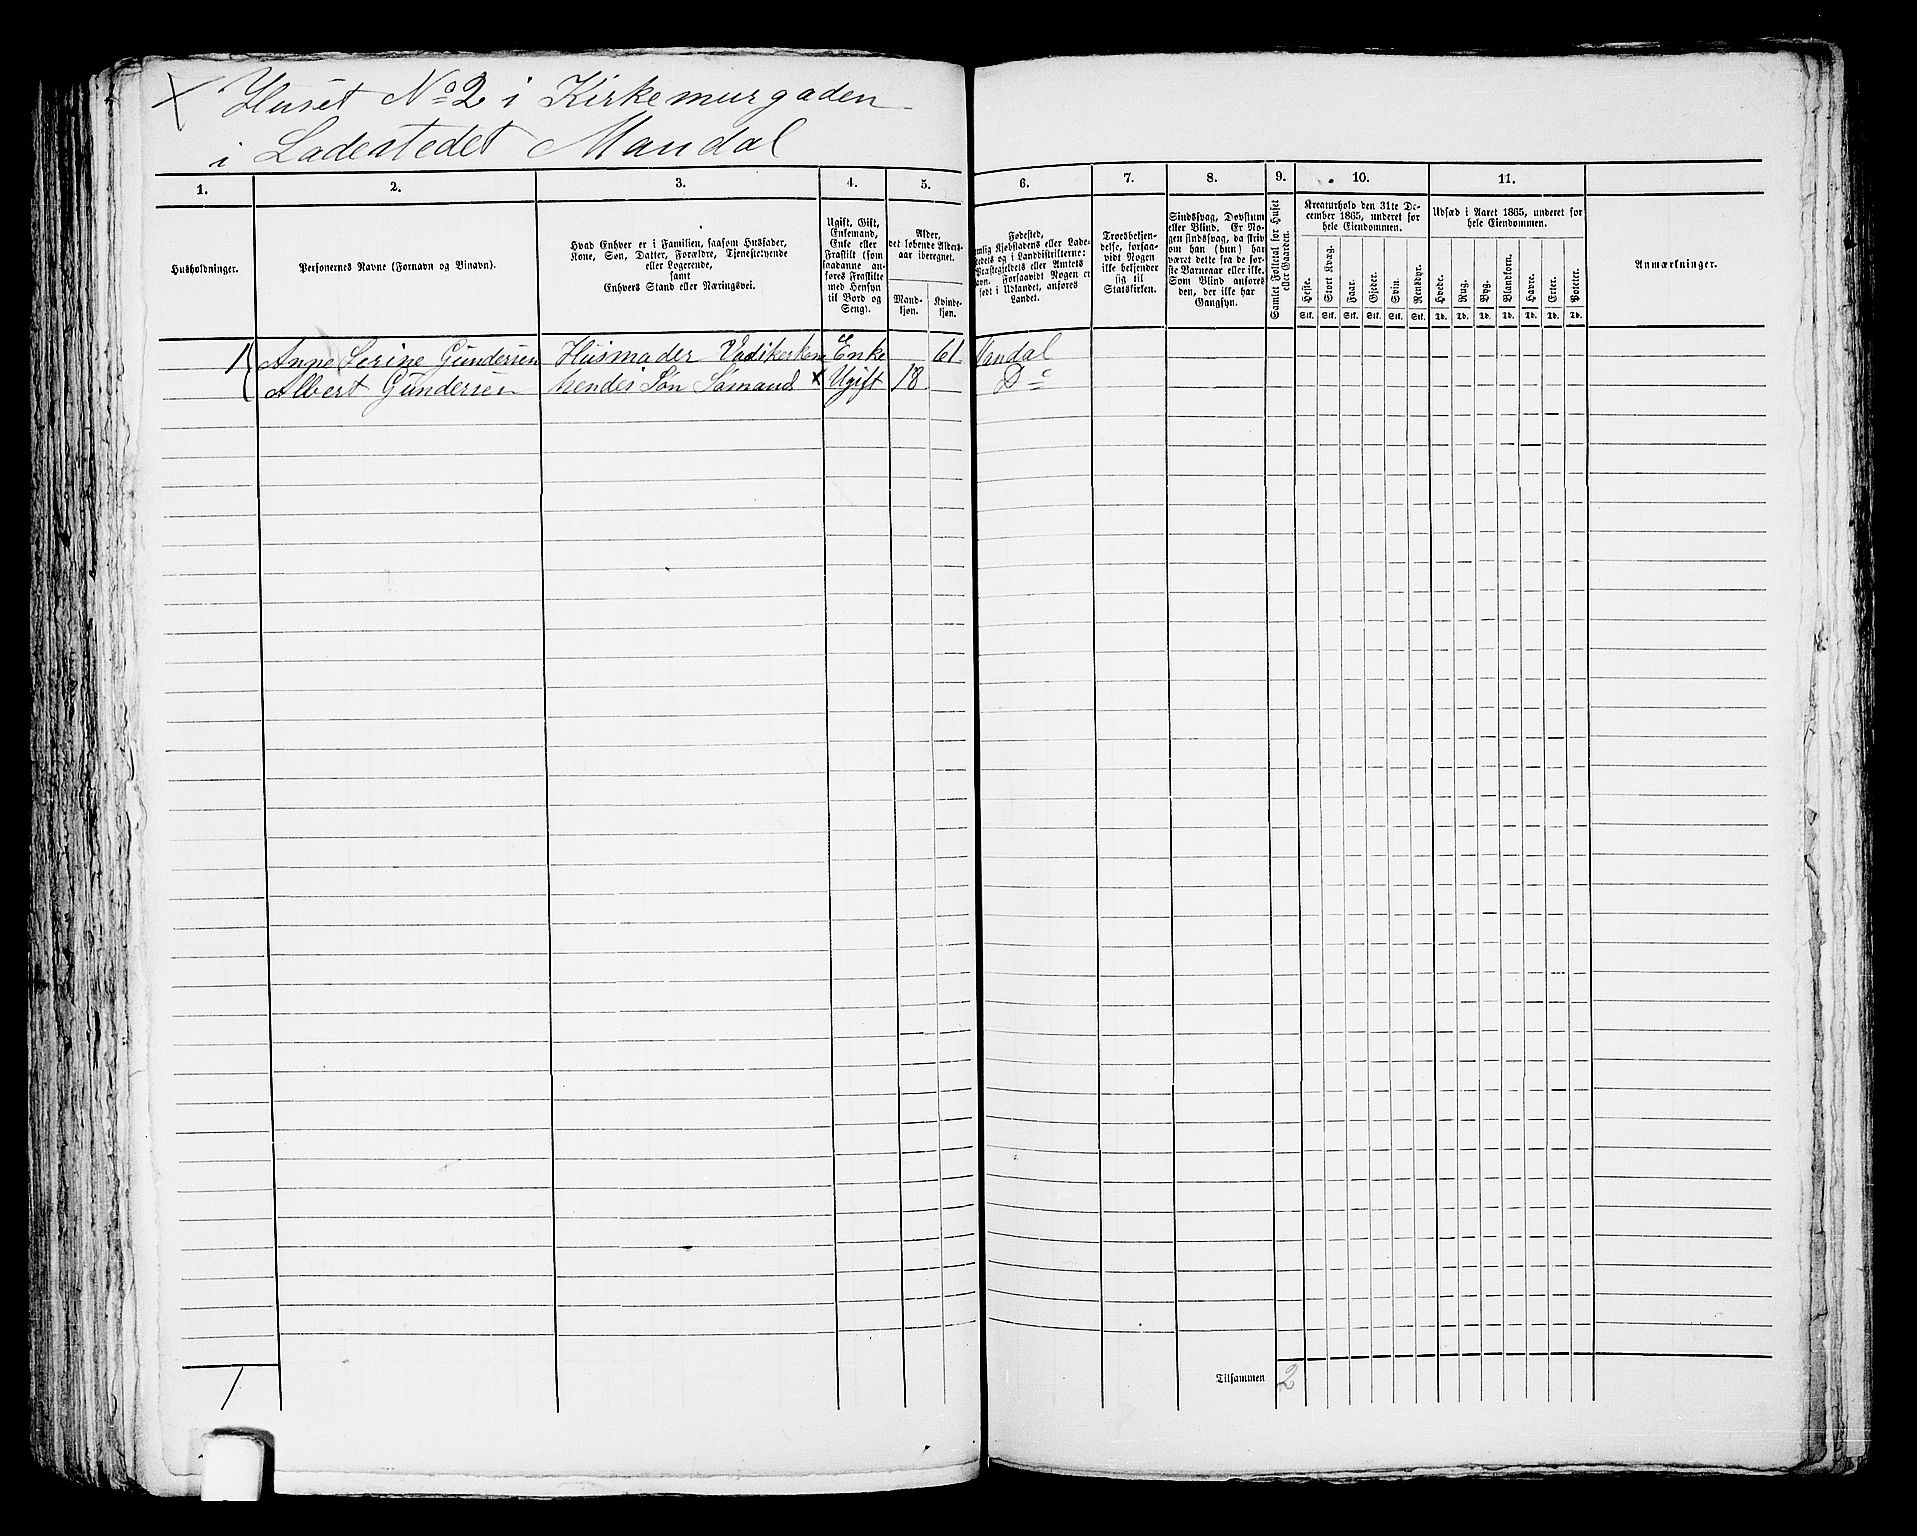 X Huset No 2 i Kirkemurgaden
i Ladestedet Mandal
1. 2. 3. 4. 5. 6. 7. 8. 9. 10. 11.
Husholdninger.
Personernes Navne (Fornavn og Binavn).
Hvad Enhver er i Familien, saasom Husfader,
Kone, Søn, Datter, Forældre, Tjenestetyende
eller Logerende,
samt
Enhvers Stand eller Næringsvei.
Ugift, Gift,
Enkemand,
Enke eller
Fraskilt (som
saadanne an-
føres Fraskilte
med Hensyn
til Bord og
Seng).
Alder,
det løbende Alders-
aar iberegnet.
Mand-
kjøn.
Kvinde-
kjøn.
Fødested,
nemlig Kjøbstadens eller Lade-
stedets og i Landdistrikterne:
Præstegjeldets eller Amtets
Navn. Forsaavidt Nogen er
født i Udlandet, anføres
Landet.
Troesbekjen-
delse, forsaa-
vidt Nogen
ikke bekjender
sig til
Statskirken.
Sindssvag, Døvstum
eller Blind. Er No-
gen sindssvag, da skriv
om han (hun) har
været dette fra de før-
ste Barneaar eller ikke.
Som Blind anføres
den, der ikke har
Gangsyn.
Samlet Folketal for Huset
eller Gaarden.
Kreaturhold den 31te De-
cember 1865, underet for
hele Eiendommen.
Heste. Stort Kvæg. Faar. Gjeder. Svin. Rensdyr.
Stk. Stk. Stk. Stk. Stk. Stk.
Udsæd i Aaret 1865, underet for
hele Eiendommen.
Hvede. Rug. Byg. Blandkorn. Havre. Erter. Poteter.
Td. Td. Td. Td. Td. Td. Td.
Anmærkninger.
1 Anne Serine Gundersen Husmoder Enke 61 Mandal
Albert Gundersen hendes Søn Sømand x Ugift 18 Do
Tilsammen 2
1